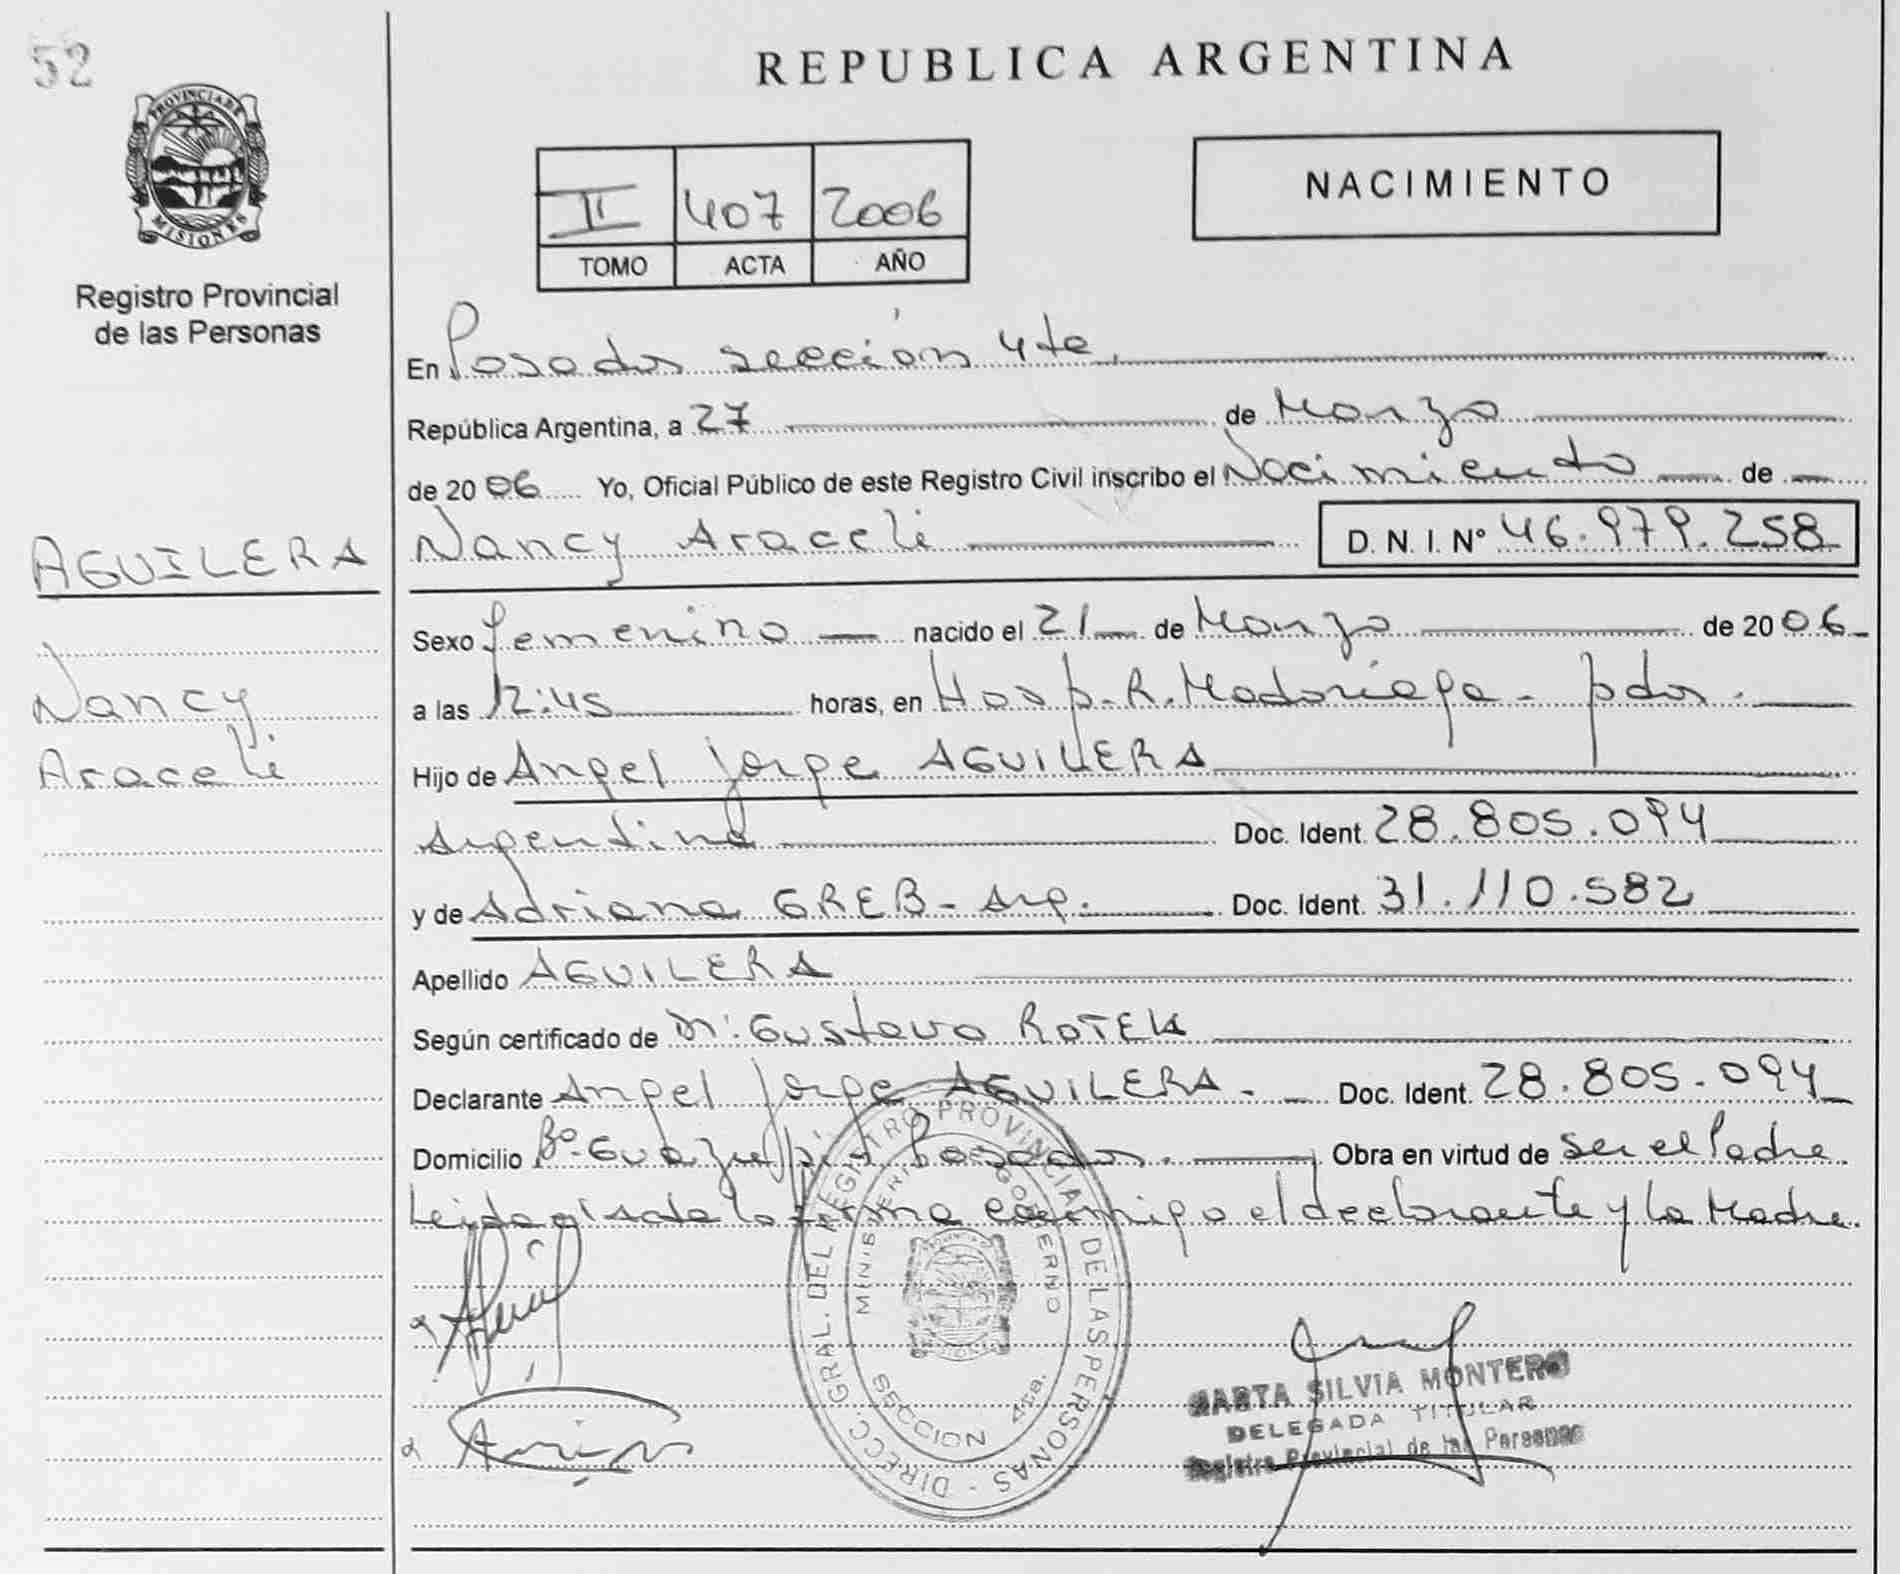 52
REPUBLICA ARGENTINA
PROVINCIA DE
MISIONES
Registro Provincial
de las Personas
II 407 2006
TOMO ACTA AÑO
NACIMIENTO
En Posadas sección 4ta.
República Argentina, a 27 de Marzo
de 2006 Yo, Oficial Público de este Registro Civil inscribo el Nacimiento de
AGUILERA
Nancy Araceli D. N. I. Nº 46.979.258
Sexo femenino nacido el 21 de Marzo de 2006
Nancy
a las 12:45 horas, en Hosp. R. Madariaga - pdas.
Araceli
Hijo de Angel Jorge AGUILERA
Argentina Doc. Ident. 28.805.094
y de Adriana GREB - Arg. Doc. Ident. 31.110.582
Apellido AGUILERA
Según certificado de Dr. Gustavo ROTEK
Declarante Angel Jorge AGUILERA. Doc. Ident. 28.805.094
Domicilio Bº Guazupi Posadas. Obra en virtud de ser el Padre
Leida el acta la firma conmigo el declarante y la Madre.
DIRECC. GRAL. DEL REGISTRO PROVINCIAL DE LAS PERSONAS -
MINISTERIO GOBIERNO
SECCION 4ta.
MARTA SILVIA MONTERO
DELEGADA TITULAR
Registro Provincial de las Personas